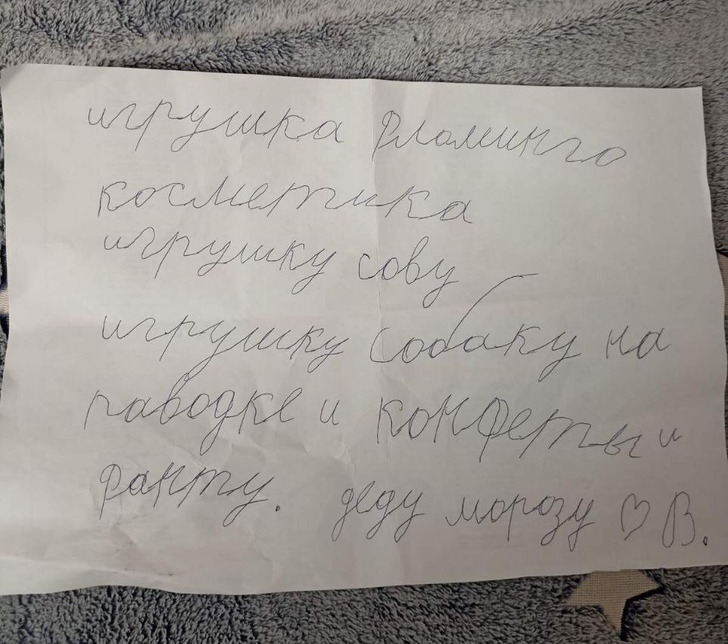 игрушка фламинго
косметика
игрушку сову
игрушку собаку на
паводке и конфеты и
фанту. деду морозу ♡ В.